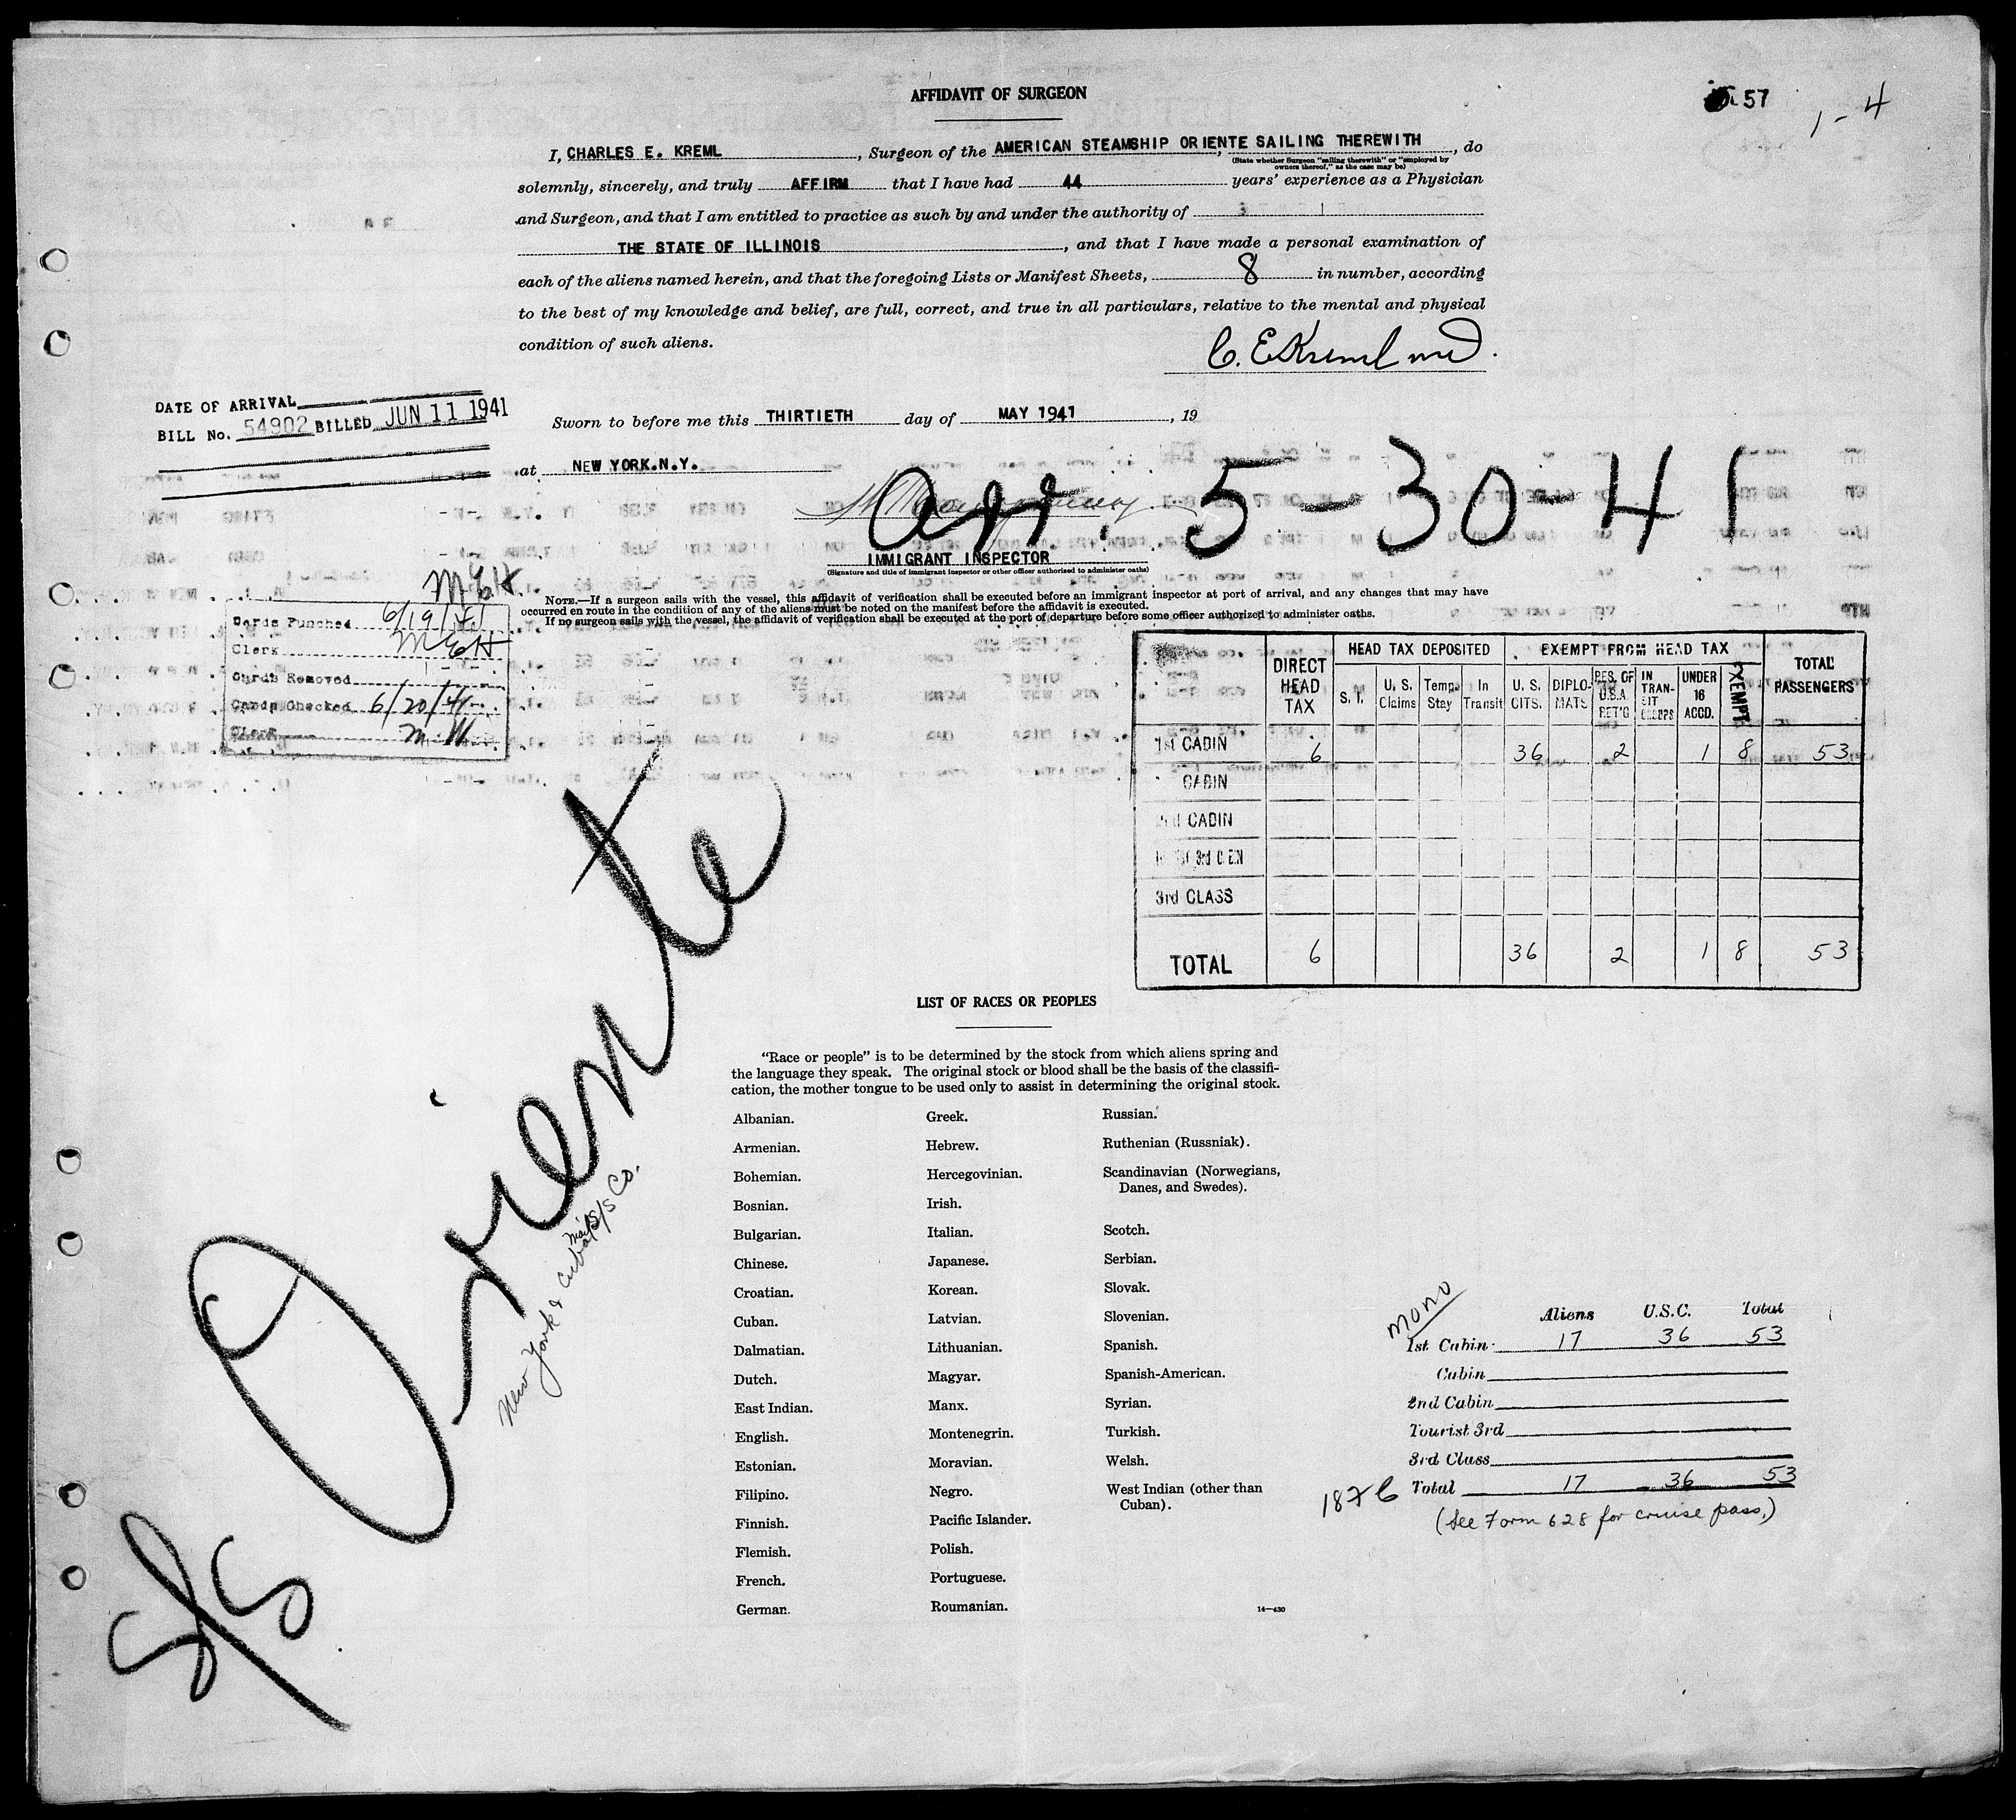 AFFIDAVIT OF SURGEON
57
1-4
I, CHARLES E. KREML, Surgeon of the AMERICAN STEAMSHIP ORIENTE SAILING THEREWITH, do
(State whether Surgeon "sailing therewith" or "employed by owners thereof," as the case may be)
solemnly, sincerely, and truly AFFIRM that I have had 44 years' experience as a Physician
and Surgeon, and that I am entitled to practice as such by and under the authority of
THE STATE OF ILLINOIS, and that I have made a personal examination of
each of the aliens named herein, and that the foregoing Lists or Manifest Sheets, 8 in number, according
to the best of my knowledge and belief, are full, correct, and true in all particulars, relative to the mental and physical
condition of such aliens.
C. E Kreml md.
DATE OF ARRIVAL
BILL No. 54902 BILLED JUN 11 1941
Sworn to before me this THIRTIETH day of MAY 1941, 19
at NEW YORK.N.Y.
arr. 5-30-41
IMMIGRANT INSPECTOR
(Signature and title of immigrant inspector or other officer authorized to administer oaths)
NOTE.—If a surgeon sails with the vessel, this affidavit of verification shall be executed before an immigrant inspector at port of arrival, and any changes that may have
occurred en route in the condition of any of the aliens must be noted on the manifest before the affidavit is executed.
If no surgeon sails with the vessel, the affidavit of verification shall be executed at the port of departure before some officer authorized to administer oaths.
MEH
Cards Punched 6/19/41
Clerk MEH
Cards Removed
Cards Checked 6/20/41
Clerk M.H
DIRECT HEAD TAX
HEAD TAX DEPOSITED
EXEMPT FROM HEAD TAX
TOTAL PASSENGERS
S. I. U. S. Claims Temp. Stay In Transit U. S. CITS. DIPLO-MATS RES. OF U.S.A RET'G IN TRAN-SIT GROUPS UNDER 16 ACCD. EXEMPT
1st CABIN 6 36 2 1 8 53
CABIN
2nd CABIN
3rd CLASS
TOTAL 6 36 2 1 8 53
S/S Oriente
New York & Cuba Mail S/S Co.
LIST OF RACES OR PEOPLES
"Race or people" is to be determined by the stock from which aliens spring and
the language they speak. The original stock or blood shall be the basis of the classifi-
cation, the mother tongue to be used only to assist in determining the original stock.
Albanian.
Armenian.
Bohemian.
Bosnian.
Bulgarian.
Chinese.
Croatian.
Cuban.
Dalmatian.
Dutch.
East Indian.
English.
Estonian.
Filipino.
Finnish.
Flemish.
French.
German.
Greek.
Hebrew.
Hercegovinian.
Irish.
Italian.
Japanese.
Korean.
Latvian.
Lithuanian.
Magyar.
Manx.
Montenegrin.
Moravian.
Negro.
Pacific Islander.
Polish.
Portuguese.
Roumanian.
Russian.
Ruthenian (Russniak).
Scandinavian (Norwegians,
Danes, and Swedes).
Scotch.
Serbian.
Slovak.
Slovenian.
Spanish.
Spanish-American.
Syrian.
Turkish.
Welsh.
West Indian (other than
Cuban).
14—430
mono
Aliens U.S.C. Total
1st Cabin 17 36 53
Cabin
2nd Cabin
Tourist 3rd
3rd Class
Total 17 36 53
(See Form 628 for cruise pass.)